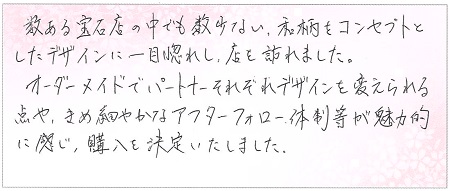 数ある宝石店の中でも数少ない、和柄をコンセプトと
したデザインに一目惚れし、店を訪れました。
オーダーメイドでパートナーそれぞれデザインを変えられる
点や、きめ細やかなアフターフォロー体制等が魅力的
に感じ、購入を決定いたしました。